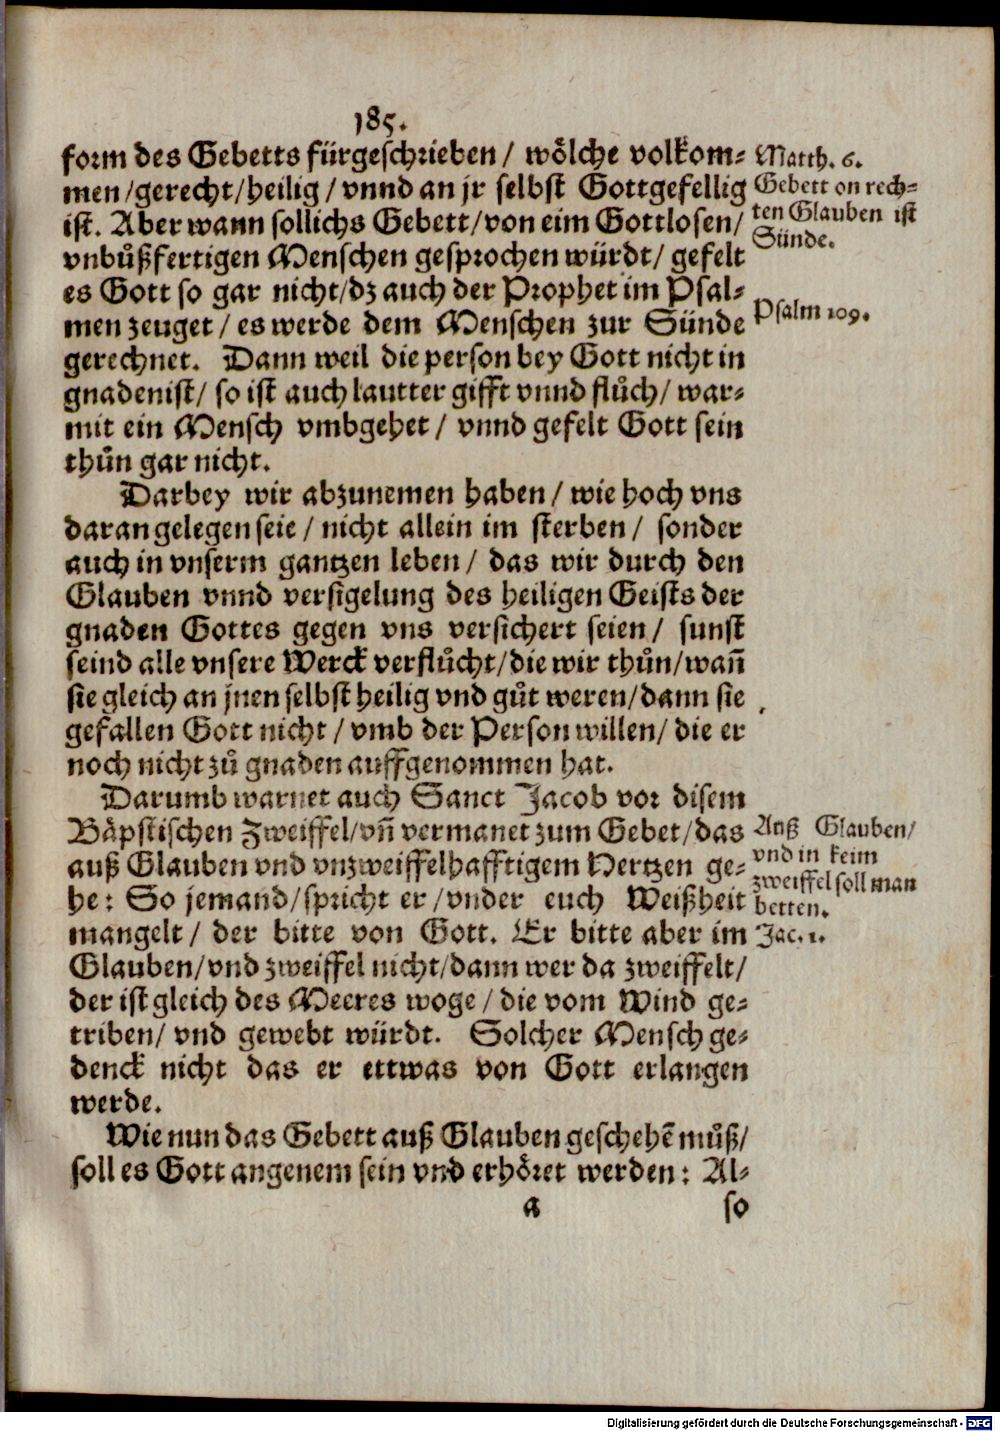 185.
form des Gebetts fürgeschrieben / wölche volkom-
men /gerecht/heilig / vnnd an jr selbst Gottgefellig
ist. Aber wann sollichs Gebett/von eim Gottlosen/
vnbůßfertigen Menschen gesprochen würdt/ gefelt
es Gott so gar nicht/dz auch der Prophet im Psal-
men zeuget / es werde dem Menschen zur Sünde
gerechnet. Dann weil die person bey Gott nicht in
gnadenist/ so ist auch lautter gifft vnnd flůch/ war-
mit ein Mensch vmbgehet / vnnd gefelt Gott sein
thůn gar nicht.
Matth. 6.
Gebett on rech-
ten Glauben ist
Sünde.
Psalm 109.
Darbey wir abzunemen haben / wie hoch vns
daran gelegen seie / nicht allein im sterben / sonder
auch in vnserm gantzen leben / das wir durch den
Glauben vnnd versigelung des heiligen Geists der
gnaden Gottes gegen vns versichert seien / sunst
seind alle vnsere Werck verflůcht/die wir thůn/wañ
sie gleich an jnen selbst heilig vnd gůt weren/dann sie
gefallen Gott nicht / vmb der Person willen/ die er
noch nicht zů gnaden auffgenommen hat.
Darumb warnet auch Sanct Jacob vor disem
Bäpstischen Zweiffel/vñ vermanet zum Gebet/das
auß Glauben vnd vnzweiffelhafftigem Hertzen ge-
he: So jemand/spricht er /vnder euch Weißheit
mangelt / der bitte von Gott. Er bitte aber im
Glauben/vnd zweiffel nicht/dann wer da zweiffelt/
der ist gleich des Meeres woge / die vom Wind ge-
triben/ vnd gewebt würdt. Solcher Mensch ge-
denck nicht das er ettwas von Gott erlangen
werde.
Auß Glauben/
vnd in keim
zweiffel soll man
betten.
Jac. 1.
Wie nun das Gebett auß Glauben geschehẽ můß/
soll es Gott angenem sein vnd erhöret werden: Al-
a so
Digitalisierung gefördert durch die Deutsche Forschungsgemeinschaft - DFG